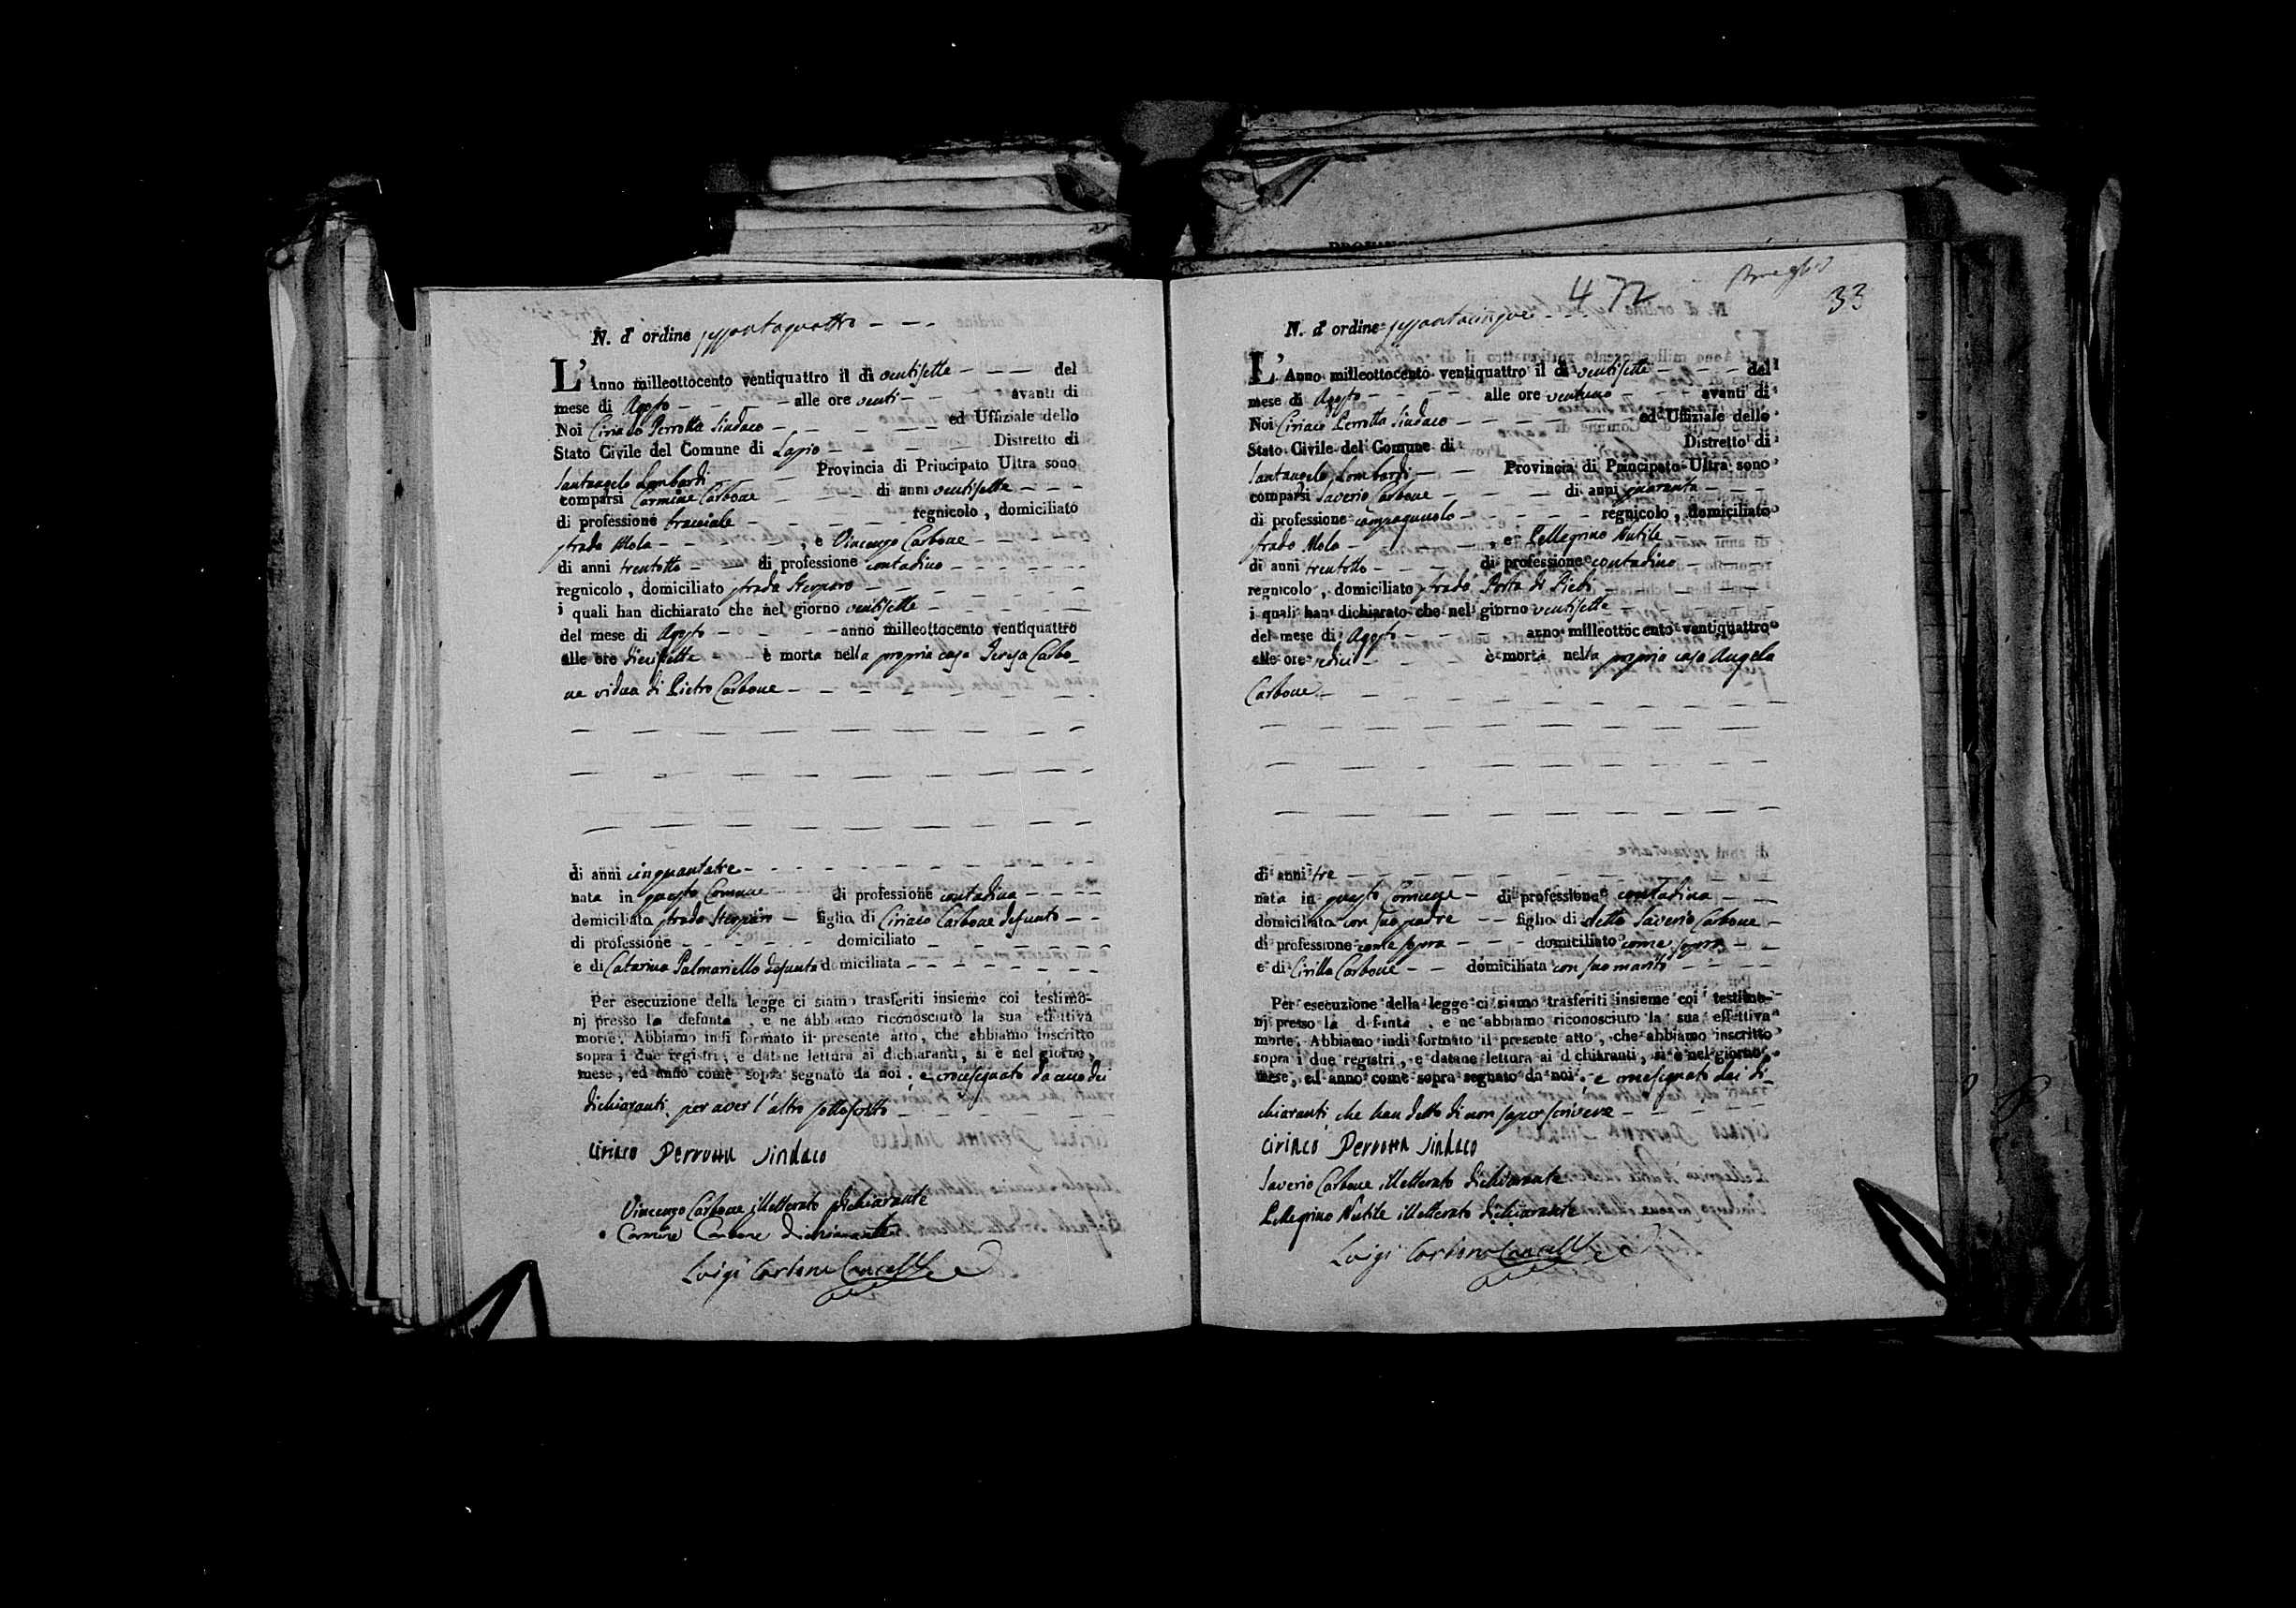 N. d'ordine sessantaquattro
L'Anno milleottocento ventiquattro il dì ventisette del
mese di Agosto alle ore venti avanti di
Noi Ciriaco Perrotta Sindaco ed Uffiziale dello
Stato Civile del Comune di Lapio Distretto di
Santangelo Lombardi Provincia di Principato Ultra sono
comparsi Carmine Carbone di anni ventisette
di professione bracciale regnicolo, domiciliato
strada Mola, e Vincenzo Carbone
di anni trentotto di professione contadino
regnicolo, domiciliato strada
i quali han dichiarato che nel giorno ventisette
del mese di Agosto anno milleottocento ventiquattro
alle ore diecisette è morta nella propria casa Teresa Carbo-
ne vidua di Pietro Carbone
di anni cinquantatre
nata in questo Comune di professione contadina
domiciliata strada figlia di Ciriaco Carbone defunto
di professione domiciliato
e di Catarina Palmariello defunta domiciliata
Per esecuzione della legge ci siamo trasferiti insieme coi testimo-
nj presso la defunta, e ne abbiamo riconosciuto la sua effettiva
morte. Abbiamo indi formato il presente atto, che abbiamo inscritto
sopra i due registri, e datane lettura ai dichiaranti, si è nel giorno,
mese, ed anno come sopra segnato da noi, e crocesegnato da uno dei
dichiaranti, per aver l'altro sottoscritto
Ciriaco Perrotta Sindaco
Vincenzo Carbone illetterato dichiarante
Carmine Carbone Dichiarante
Luigi Carbone Cancelle
472
33
N. d'ordine sessantacinque
L'Anno milleottocento ventiquattro il dì ventisette del
mese di Agosto alle ore ventuno avanti di
Noi Ciriaco Perrotta Sindaco ed Uffiziale dello
Stato Civile del Comune di Distretto di
Santangelo Lombardi Provincia di Principato Ultra sono
comparsi Saverio Carbone di anni quaranta
di professione campagnuolo regnicolo, domiciliato
strada Mola, e Pellegrino Nutile
di anni trentotto di professione contadino
regnicolo, domiciliato strada Porta di Piedi
i quali han dichiarato che nel giorno ventisette
del mese di Agosto anno milleottocento ventiquattro
alle ore sedici è morta nella propria casa Angela
Carbone
di anni tre
nata in questo Comune di professione contadina
domiciliata con suo padre figlia di detto Saverio Carbone
di professione come sopra domiciliato come sopra
e di Cirilla Carbone domiciliata con suo marito
Per esecuzione della legge ci siamo trasferiti insieme coi testimo-
nj presso la defunta, e ne abbiamo riconosciuto la sua effettiva
morte. Abbiamo indi formato il presente atto, che abbiamo inscritto
sopra i due registri, e datane lettura ai dichiaranti, si è nel giorno,
mese, ed anno come sopra segnato da noi, e crocesegnato dai di-
chiaranti, che han detto di non saper scrivere
Ciriaco Perrotta Sindaco
Saverio Carbone illetterato dichiarante
Pellegrino Nutile illetterato dichiarante
Luigi Carbone Cancelle